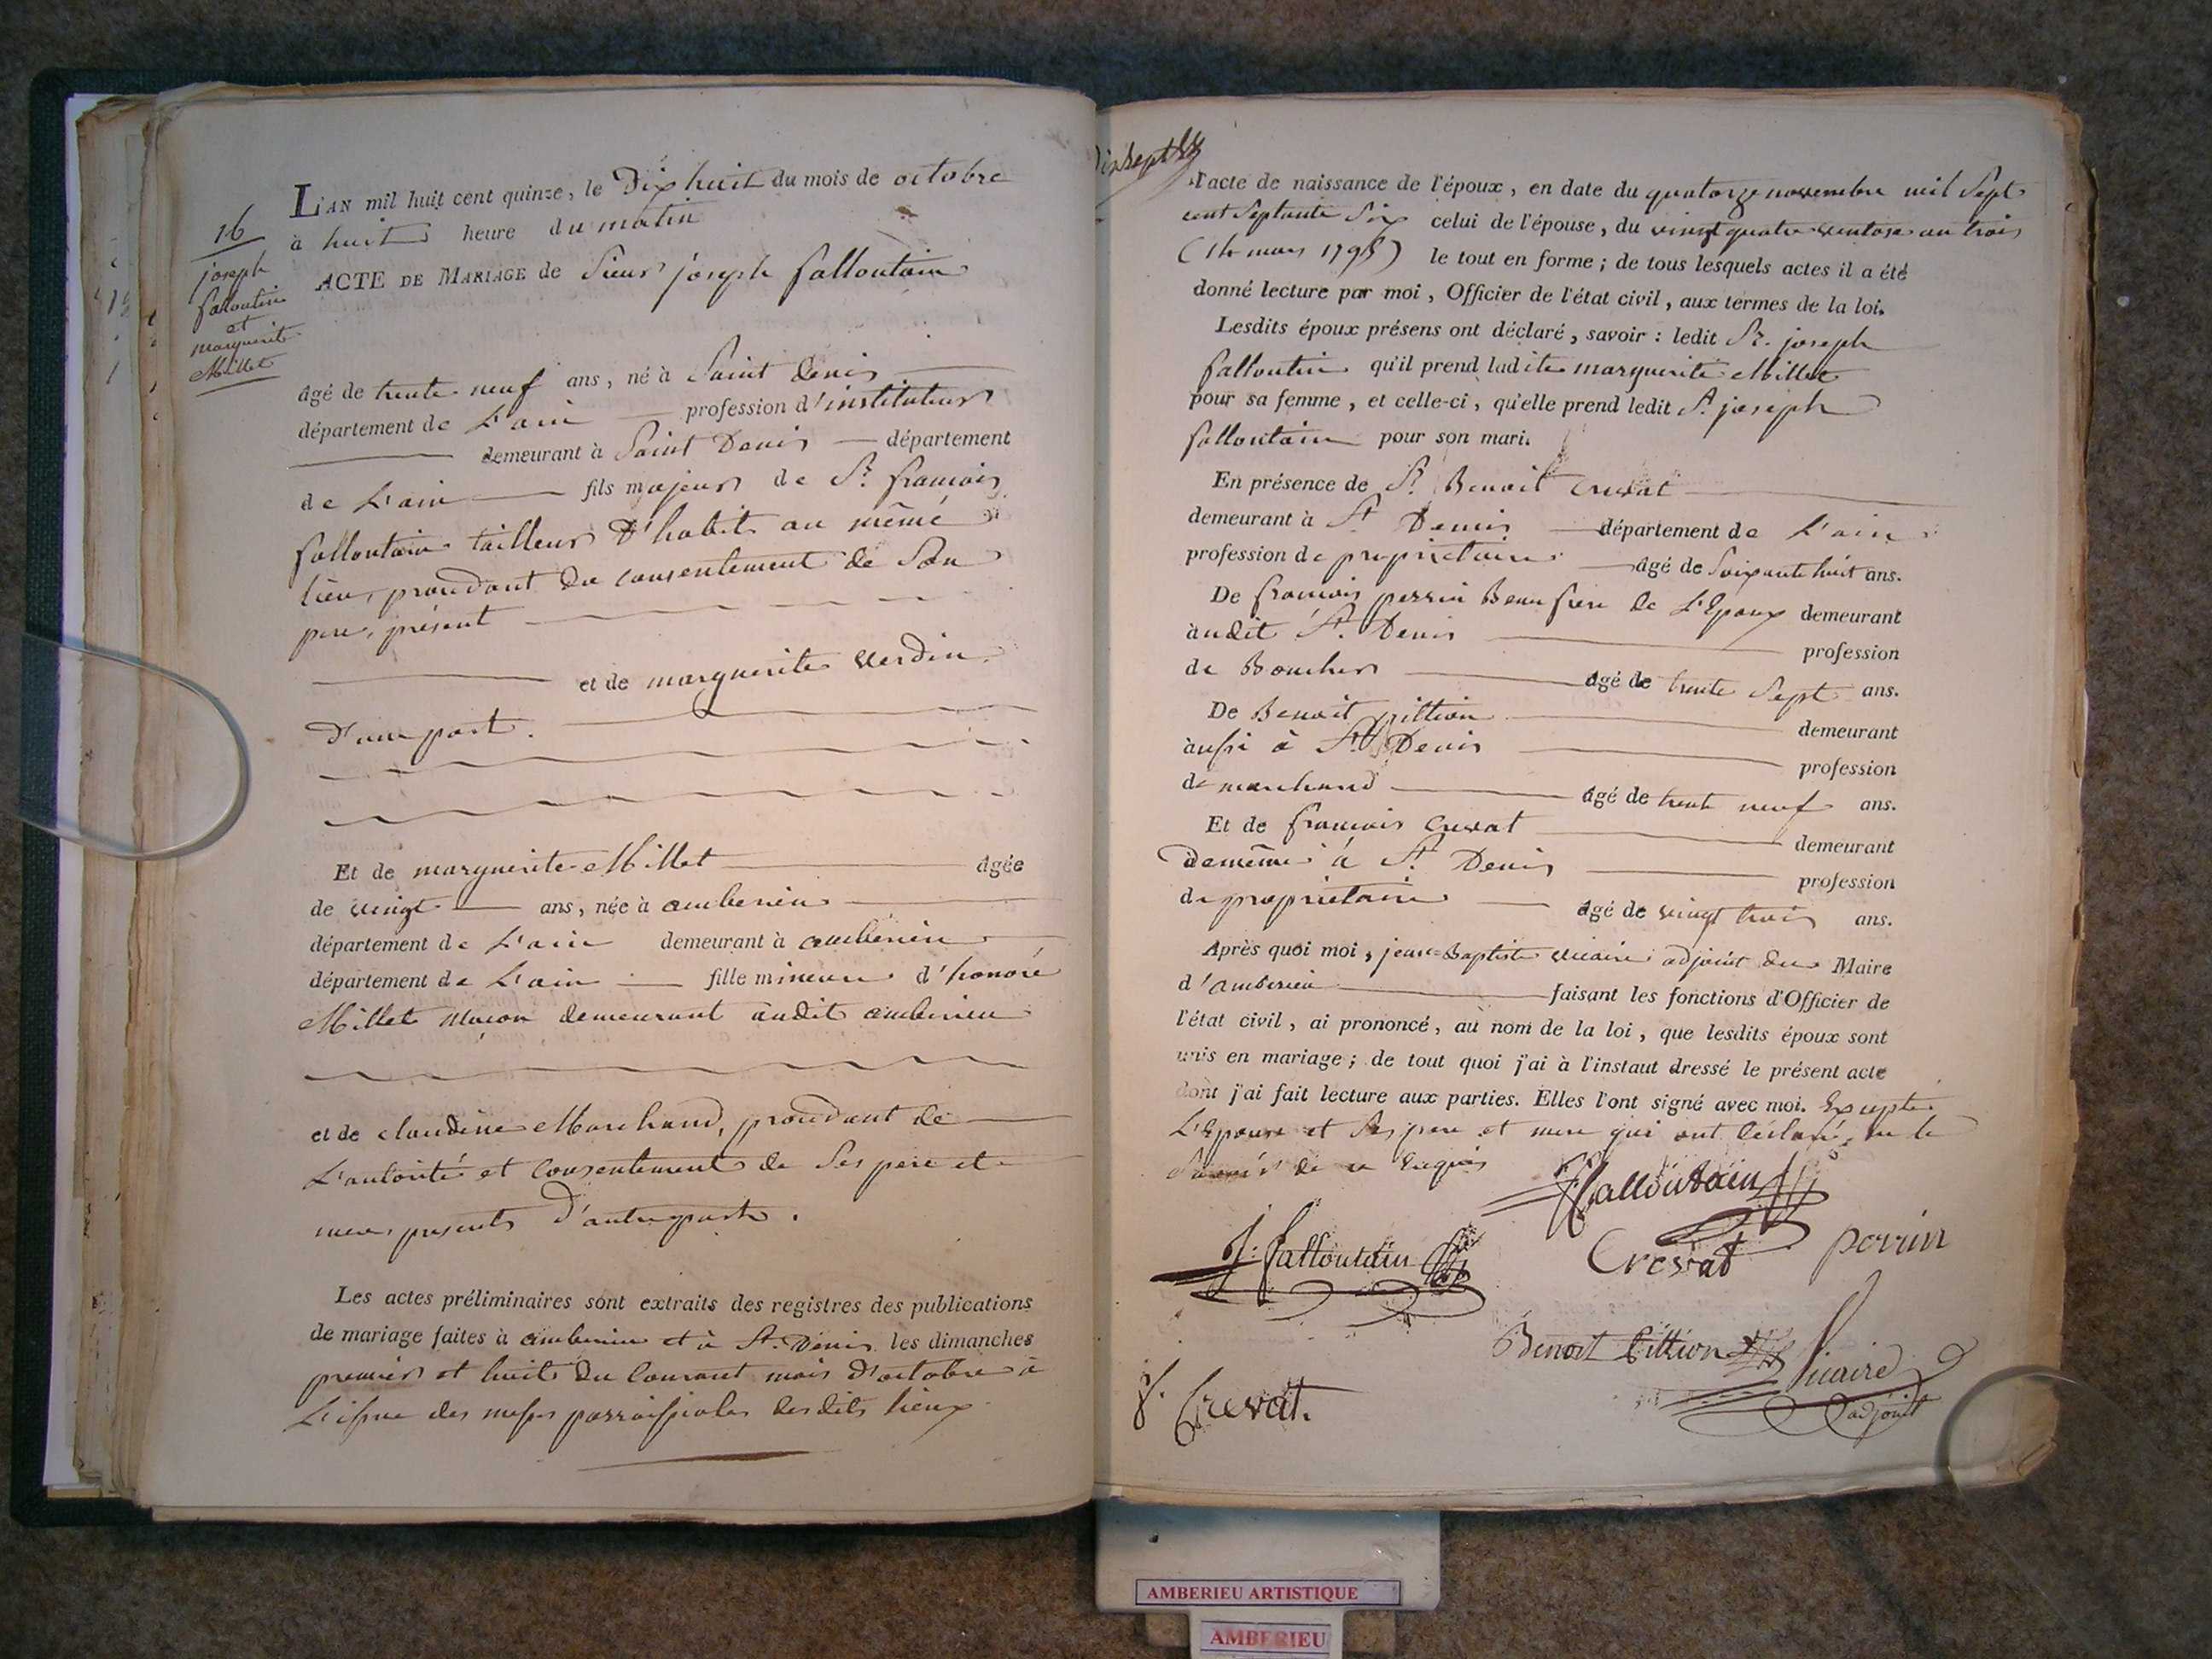 16
joseph
falloutin
et
marguerite
Millet
L'AN mil huit cent quinze, le Dix huit du mois de octobre
à huit heure du matin
ACTE DE MARIAGE de Sieur joseph falloutain
âgé de trente neuf ans, né à Saint Denis
département de L'ain profession d'instituteur
demeurant à Saint Denis département
de L'ain fils majeur de Sr. francois
falloutain tailleur d'habits au même
lieu, procedant du consentement de Son
pere, présent
et de marguerite verdin
d'une part.
Et de marguerite Millet âgée
de vingt ans, née à amberieu
département de L'ain demeurant à amberieu
département de L'ain fille mineure d'honoré
Millet maçon demeurant audit amberieu
et de claudine Marchand, procedant de
L'autorité et consentement de Ses pere et
mere presents d'autre part.
Les actes préliminaires sont extraits des registres des publications
de mariage faites à amberieu et à St. Denis les dimanches
premier et huit du courant mois d'octobre à
L'issue des messes parroissiales desdits lieux
dixsept
l'acte de naissance de l'époux, en date du quatorze novembre mil Sept
cent Septante Six celui de l'épouse, du vingt quatre ventose an trois
(14 mars 1795) le tout en forme ; de tous lesquels actes il a été
donné lecture par moi, Officier de l'état civil, aux termes de la loi.
Lesdits époux présens ont déclaré, savoir : ledit Sr. joseph
falloutin qu'il prend ladite marguerite Millet
pour sa femme, et celle-ci, qu'elle prend ledit Sr. joseph
falloutain pour son mari.
En présence de Sr. Benoit Crevat
demeurant à St Denis département de L'ain
profession de proprietaire âgé de Soixante huit ans.
De francois perrin Beau frere de L'Epoux demeurant
audit St. Denis profession
de Boucher âgé de trente Sept ans.
De Benoit pittion demeurant
aussi à St. Denis profession
de marchand âgé de trente neuf ans.
Et de francois Crevat demeurant
demême à St. Denis profession
de proprietaire âgé de vingt trois ans.
Après quoi moi, jean=Baptiste vicaire adjoint du Maire
d'amberieu faisant les fonctions d'Officier de
l'état civil, ai prononcé, au nom de la loi, que lesdits époux sont
unis en mariage ; de tout quoi j'ai à l'instant dressé le présent acte
dont j'ai fait lecture aux parties. Elles l'ont signé avec moi. Excepté
L'Epouse et Ses pere et mere qui ont déclaré ne le
Savoir de ce Enquis
falloutain
J: falloutain
Crevat
perrin
Benoit Pittion
Vicaire
adjoint
f. Crevat.
AMBERIEU ARTISTIQUE
AMBERIEU